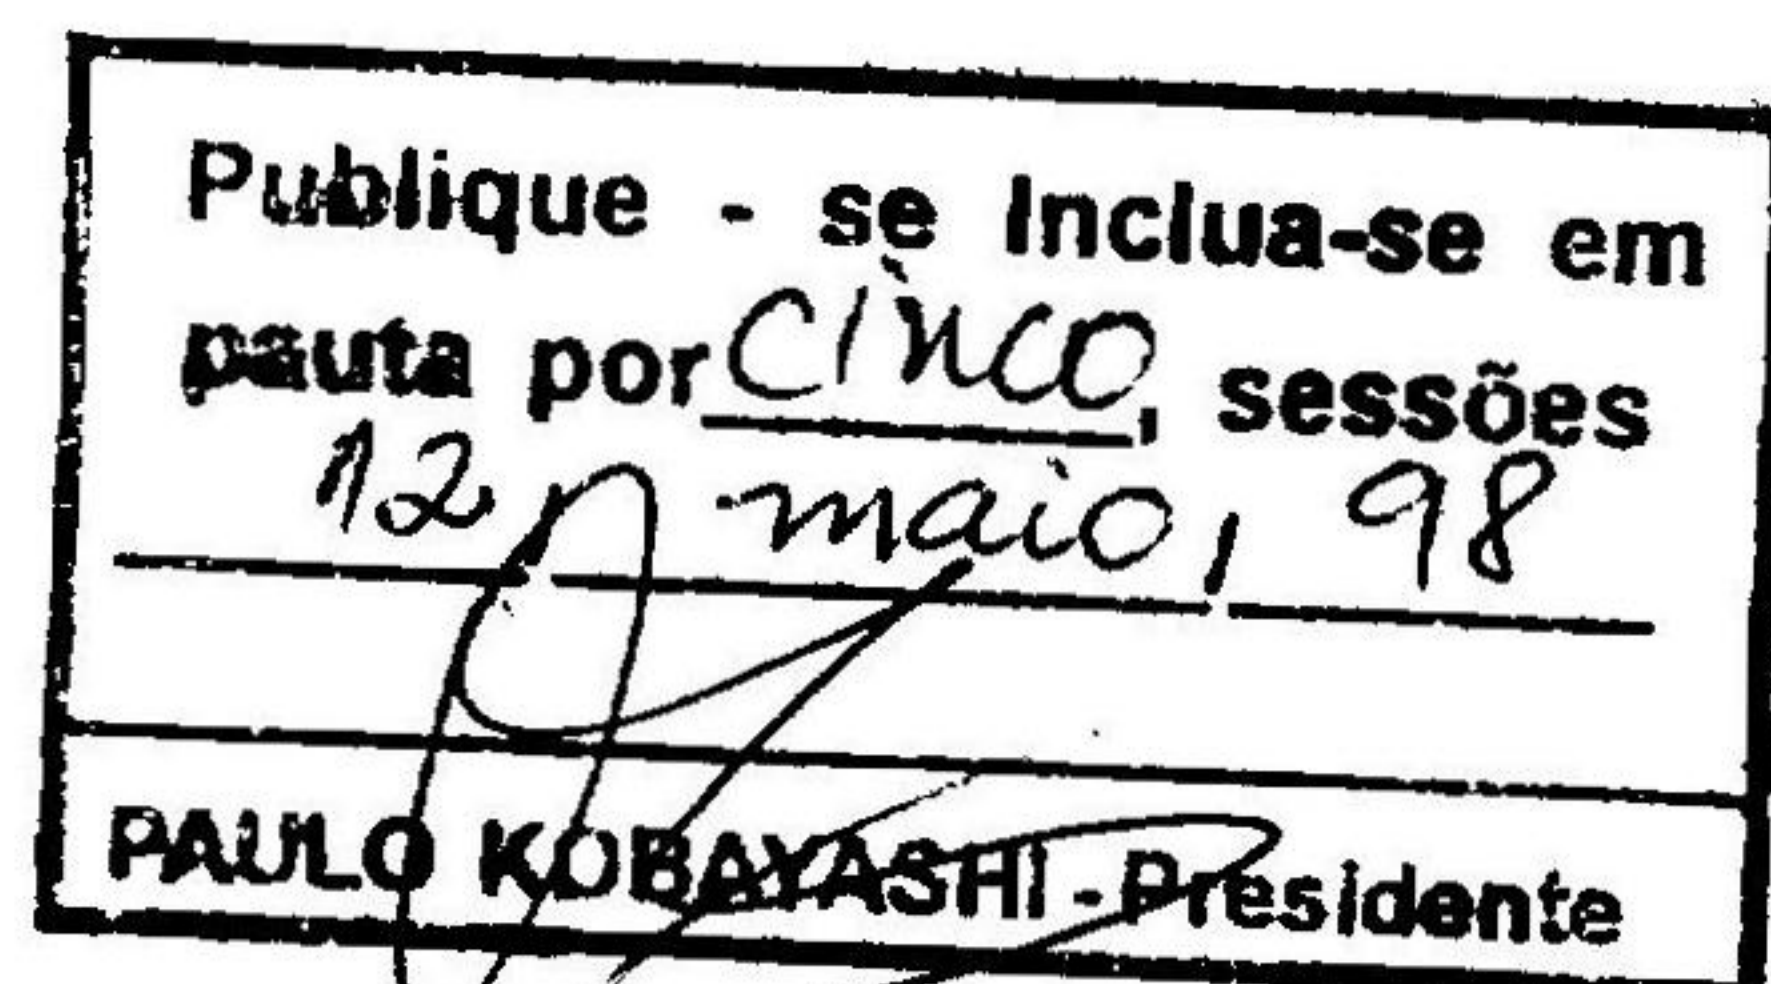 Publique - se Inclua-se em
pauta por cinco, sessões
12 maio, 98
PAULO KOBAYASHI - Presidente